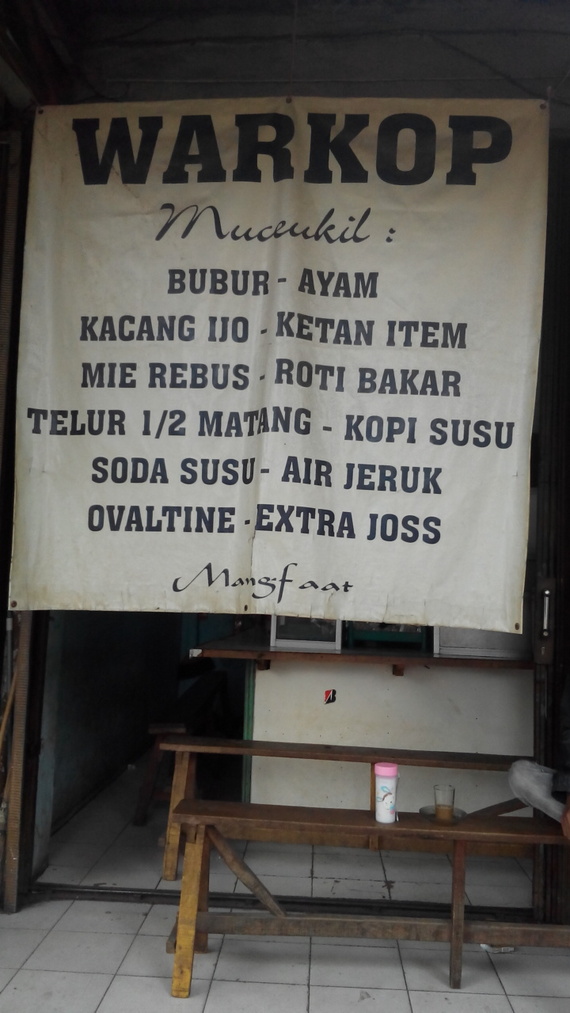 WARKOP
Muceukil :
BUBUR - AYAM
KACANG IJO - KETAN ITEM
MIE REBUS - ROTI BAKAR
TELUR 1/2 MATANG - KOPI SUSU
SODA SUSU - AIR JERUK
OVALTINE - EXTRA JOSS
Mangfaat